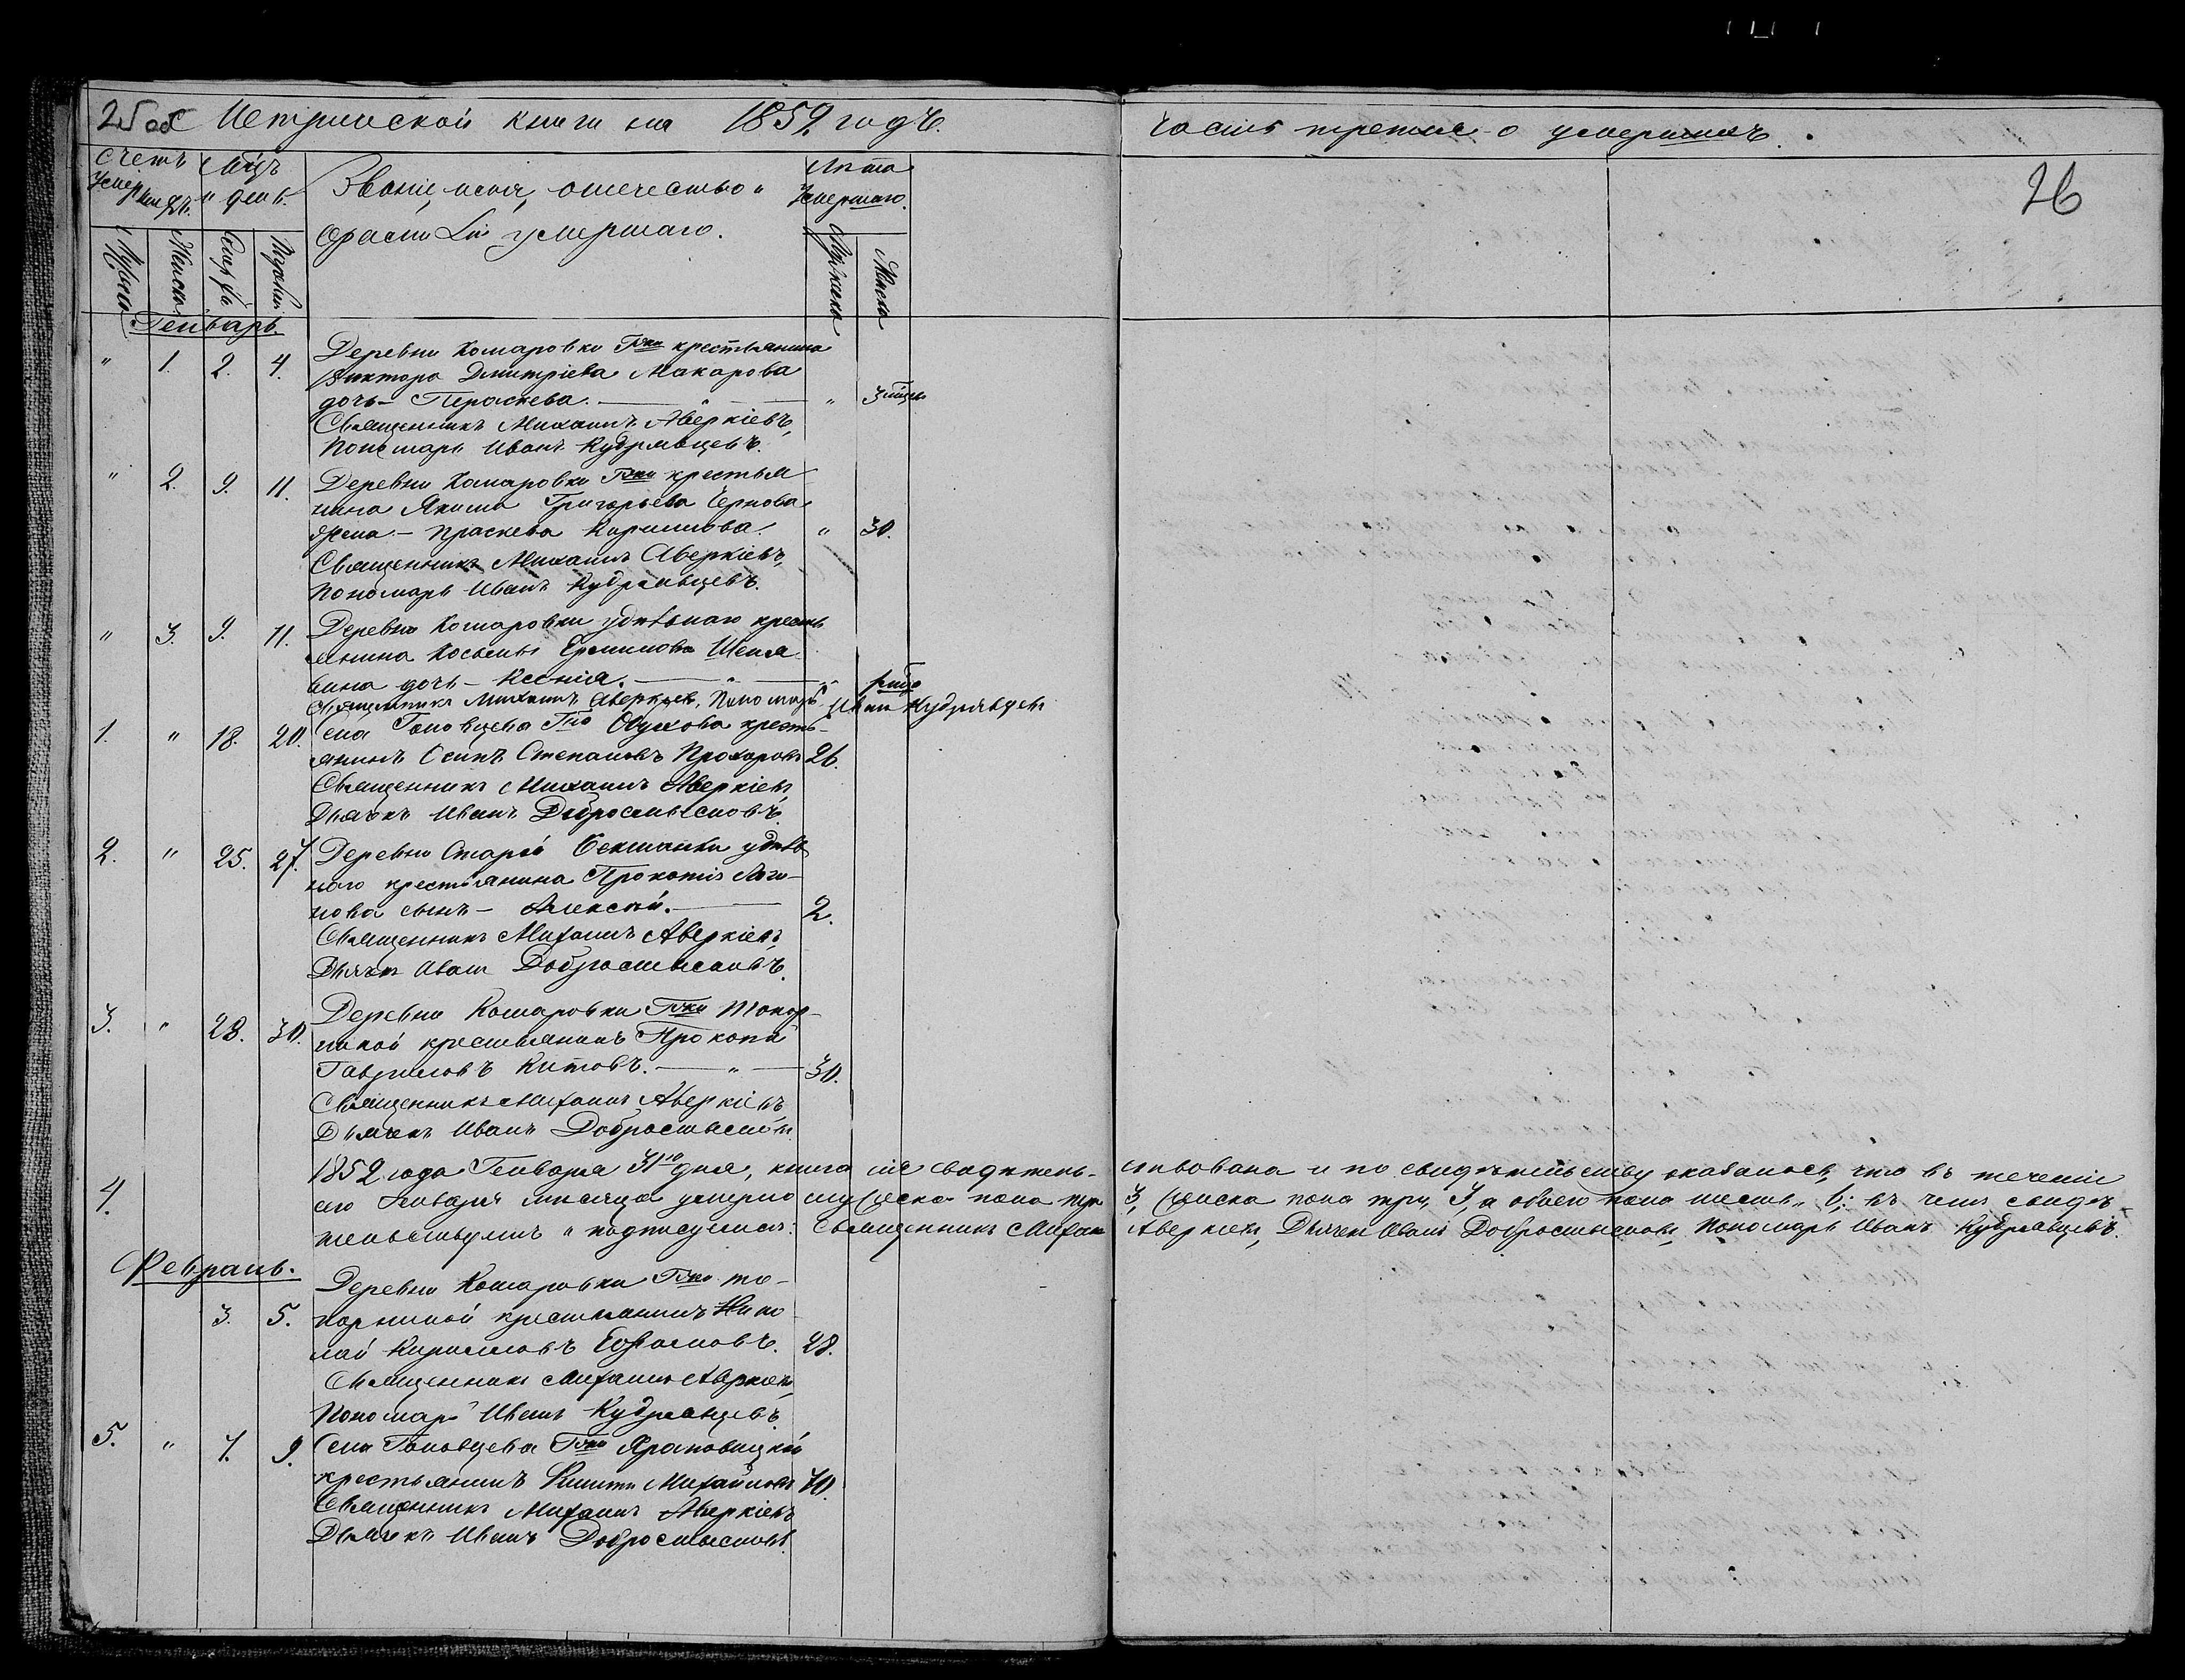 25 об Метрической книги на 1852 годъ.
часть третия о умершихъ.
26
Счетъ умершихъ.
Мѣсяцъ и день.
Званіе, имя, отечество и
фамилія умершаго.
Лѣта умершаго.
Мужеска
Женска
Смерти
Мужеска
Женска
Генварь.
" 1. 2. 4. Деревни Комаровки Гжи крестьянина
Виктора Дмитріева Макарова
дочь – Параскева. " 3 мѣсяц
Священникъ Михаилъ Аверкіевъ,
Пономарь Иванъ Кудрявцевъ.
" 2. 9. 11. Деревни Комаровки Гжи крестья
нина Якима Григорьева Чернова
жена – Праскева Кирилова. " 30.
Священникъ Михаилъ Аверкіевъ,
Пономарь Иванъ Кудрявцевъ.
" 3. 9. 11. Деревни Комаровки удѣльнаго кресть
янина Косьмы Ермилова
вина дочь – Ксенія. "
Священникъ Михаилъ Аверкіевъ, Пономарь Иван Кудрявцевъ
1. " 18. 20. Села Головцева Гна Обухова кресть-
янинъ Осипъ Степановъ Прохоровъ 26.
Священникъ Михаилъ Аверкіевъ
Дьячекъ Иванъ Добросмысловъ.
2. " 25. 27. Деревни Старой удѣль
наго крестьянина Прокопія Логи-
нова сынъ – Алексѣй. 2.
Священникъ Михаилъ Аверкіевъ,
Дьячекъ Иванъ Добросмысловъ.
3. " 28. 30. Деревни Комаровки Гжи Топор-
ниной крестьянинъ Прокопій
Гавриловъ Китовъ. " 30.
Священникъ Михаилъ Аверкіевъ
Дьячекъ Иванъ Добросмысловъ
1852 года Генваря 31го дня, книга сія свидѣтель- ствована и по свидѣтельству оказалось, что въ теченіи
4. сего Генваря мѣсяца умерло мужеска пола три 3, женска пола три, 3, а обоего пола шесть, 6: въ чемъ свидѣ-
тельствуемъ и подписуемся: Священникъ Михаилъ Аверкіевъ, Дьячекъ Иванъ Добросмысловъ, Пономарь Иванъ Кудрявцевъ.
Февраль.
3. 5. Деревни Комаровки Гжи То-
порниной крестьянинъ Нико
лай Кириловъ 28.
Священникъ Михаилъ Аверкіевъ,
Пономарь Иванъ Кудрявцевъ.
5. " 7. 9. Села Головцева Гжи
крестьянинъ Михайловъ 70.
Священникъ Михаилъ Аверкіевъ
Дьячекъ Иванъ Добросмысловъ.